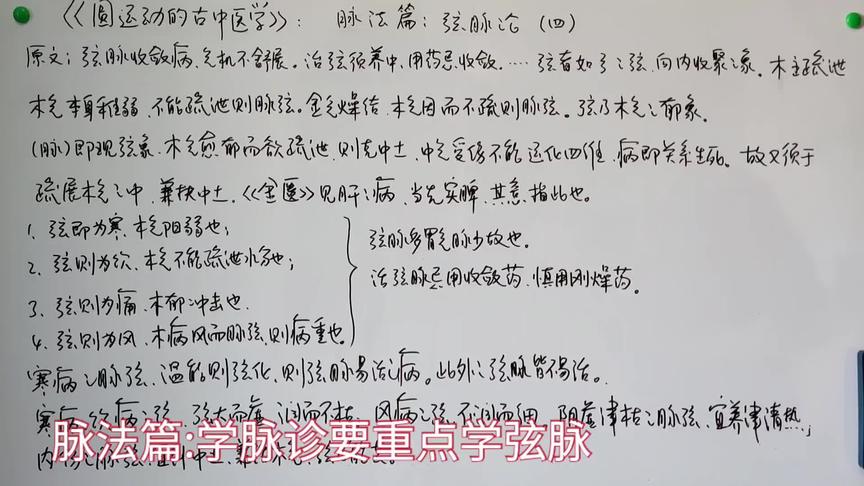 《圆运动的古中医学》: 脉法篇: 弦脉论 (四)
原文: 弦脉收敛病, 气机不舒展。治弦须养中, 用药忌收敛. …… 弦者如弓之弦, 向内收聚之象。木主疏泄
木气本身稚弱, 不能疏泄则脉弦。金气燥结, 木气因而不疏则脉弦。弦乃木气之郁象。
(脉) 即现弦象, 木气愈郁而欲疏泄, 则克中土, 中气受伤不能运化四维, 病即关系生死。故又须于
疏展木气之中, 兼扶中土,《金匮》见肝之病, 当先实脾, 其意指此也。
1. 弦即为寒, 木气阳弱也;
2. 弦则为饮, 木气不能疏泄水分也;
3. 弦则为痛, 木郁冲击也.
4. 弦则为风, 木病风而脉弦, 则病重也。
弦脉多胃气脉少故也.
治弦脉忌用收敛药, 慎用刚燥药。
寒病之脉弦, 温能则弦化, 则弦脉易治之病。此外之弦脉皆不易治。
寒病饮病之弦, 弦大而 润而不枯, 风病之弦, 不润而细, 阴虚津枯之脉弦, 宜养津清热;
脉法篇:学脉诊要重点学弦脉